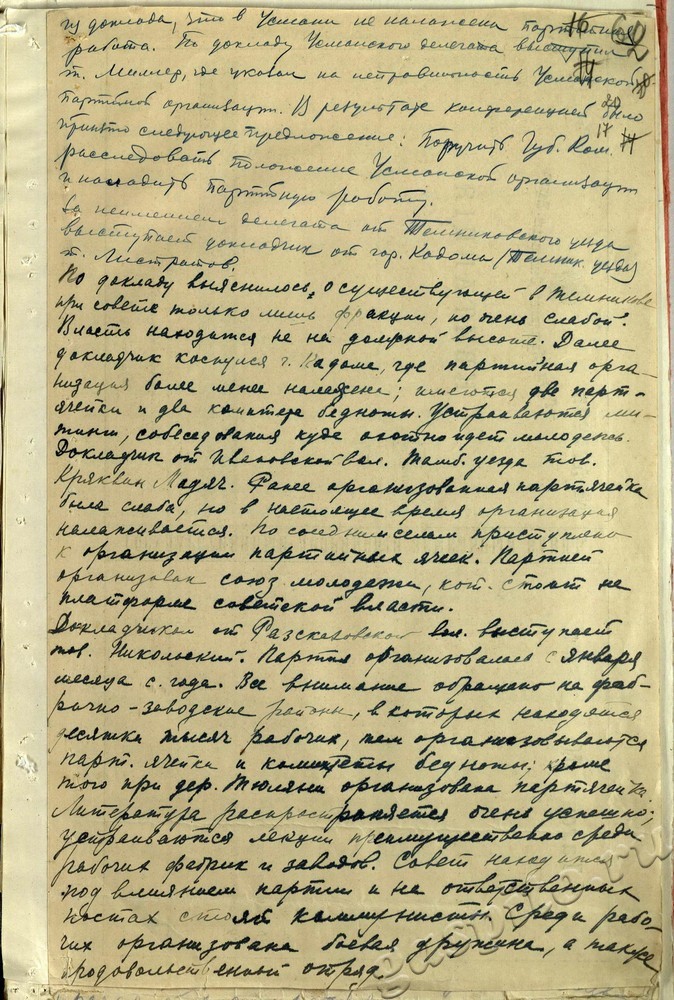 из доклада, что в Усмани не налажена партийная
работа. По докладу Усманского делегата выступил
т. Миллер, где указал на неправильность Усманской
партийной организации. В результате конференцией было
принято следующее предложение: Поручить Губ. Ком.
расследовать положение Усманской организации
и наладить партийную работу.
За неимением делегата от Темниковского уезда
выступает докладчик от гор. Кадома /Темник. уезда/
т. Листратов.
По докладу выяснилось, о существующей в Темникове
при совете только лишь фракции, но очень слабой.
Власть находится не на должной высоте. Далее
докладчик коснулся г. Кадома, где партийная орга-
низация более менее налажена; имеются две парт-
ячейки и два комитета бедноты. Устраиваются ми-
тинги, собеседования куда охотно идет молодежь.
Докладчик от Ивановской вол. Тамб. уезда тов.
Кряквин Ранее организованная партячейка
была слаба, но в настоящее время организация
налаживается. По соседним селам приступлено
к организации партийных ячеек. Партией
организован союз молодежи, кот. стоит на
платформе советской власти.
Докладчиком от Разсказовской вол. выступает
тов. Никольский. Партия организовалась с января
месяца с. года. Все внимание обращено на фаб-
рично-заводские районы, в которых находятся
десятки тысяч рабочих, там организовываются
парт. ячейки и комитеты бедноты; кроме
того при дер. организована партячейка.
Литература распространяется очень успешно;
устраиваются лекции преимущественно среди
рабочих фабрик и заводов. Совет находится
под влиянием партии и на ответственных
постах стоят коммунисты. Среди рабо-
чих организована боевая дружина, а также
продовольственный отряд.